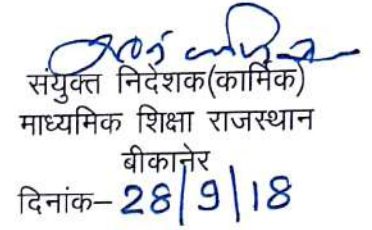 संयुक्त निदेशक(कार्मिक)
माध्यमिक शिक्षा राजस्थान
बीकानेर
दिनांक– 28/9/18